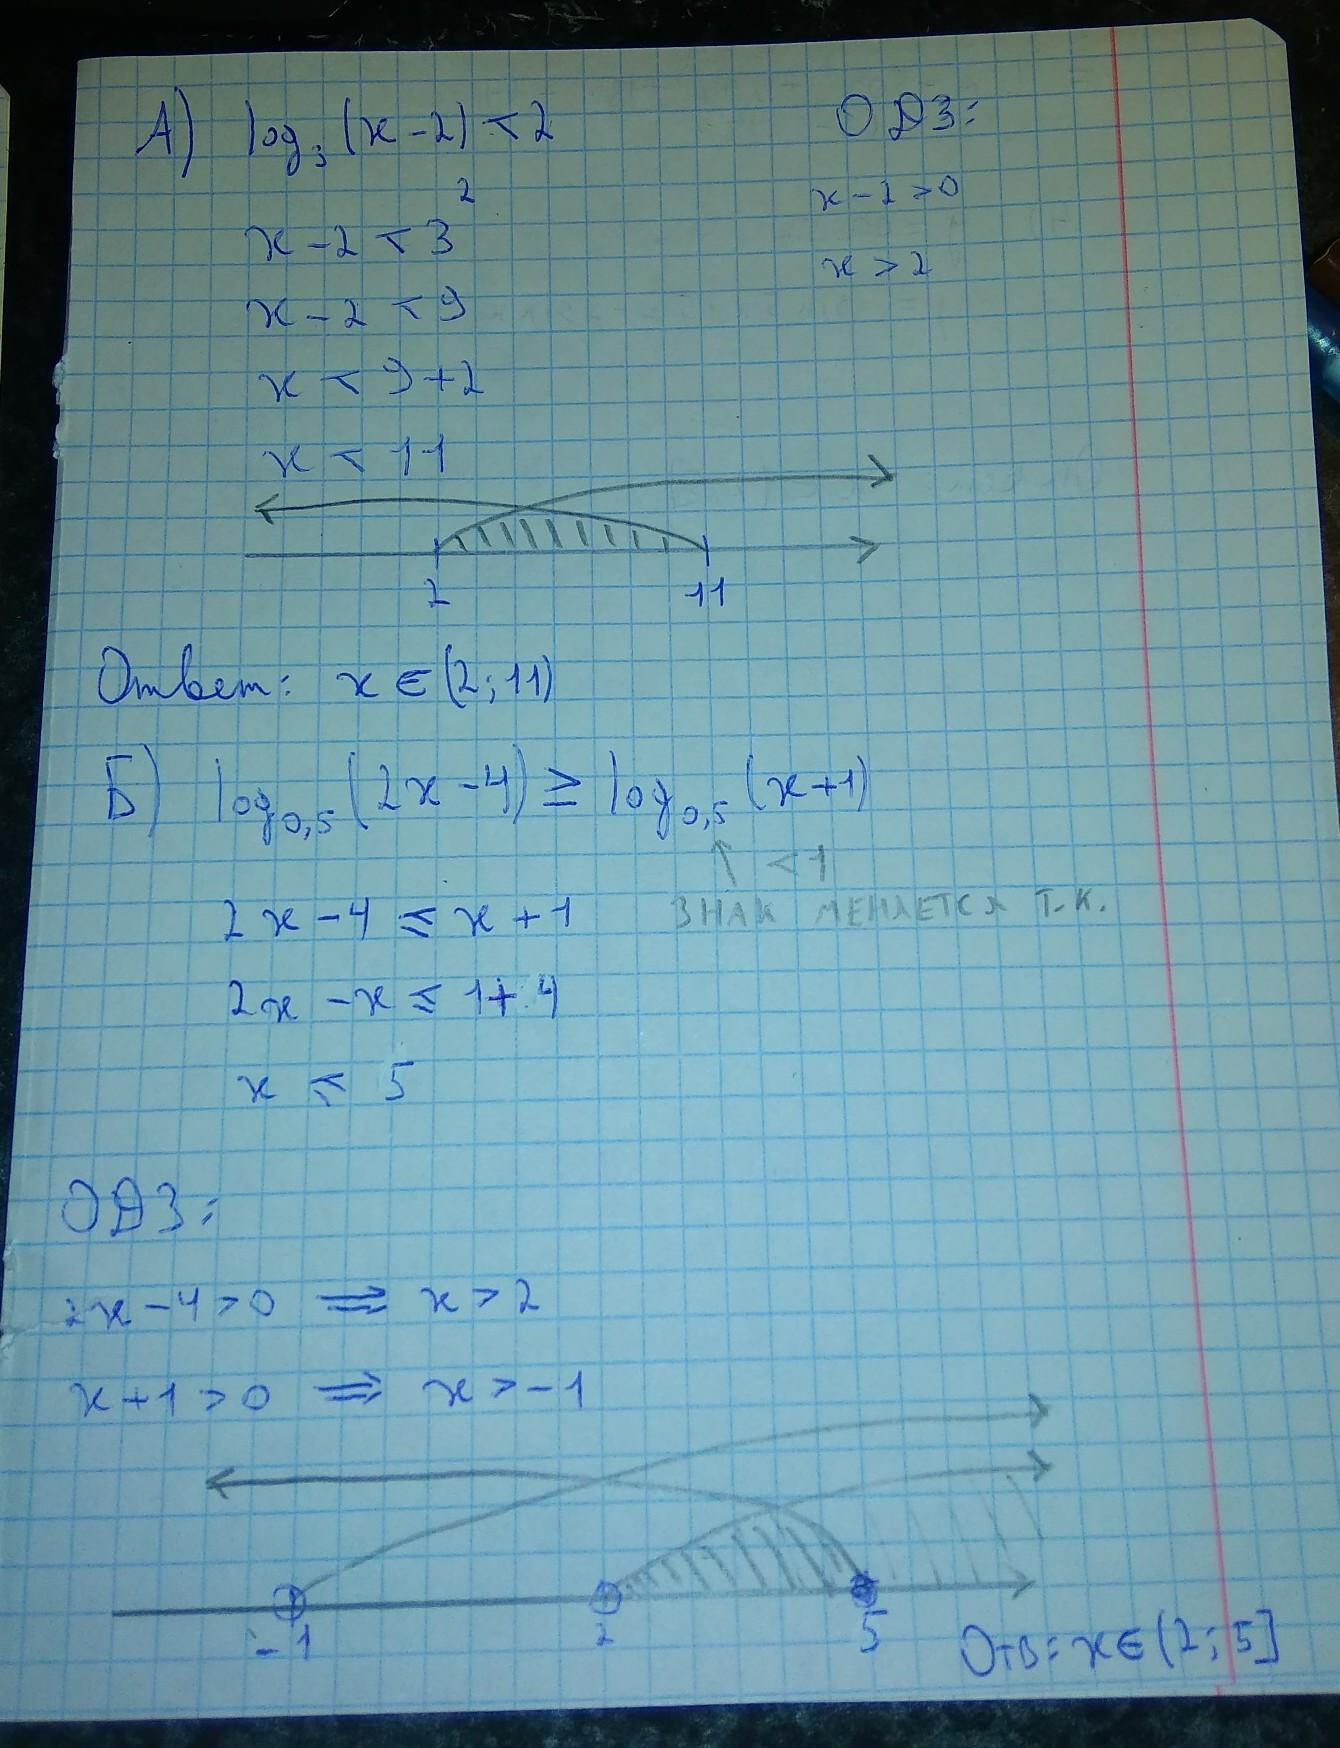 А) log₃(x-2) < 2
ОДЗ:
x-2 < 3²
x-2 > 0
x-2 < 9
x > 2
x < 9+2
x < 11
2 11
Ответ: x ∈ (2; 11)
Б) log₀,₅(2x-4) ≥ log₀,₅(x+1)
< 1
2x-4 ≤ x+1 ЗНАК МЕНЯЕТСЯ Т.К.
2x-x ≤ 1+4
x ≤ 5
ОДЗ:
2x-4>0 ⟹ x>2
x+1>0 ⟹ x>-1
-1 2 5
Отв: x∈(2; 5]